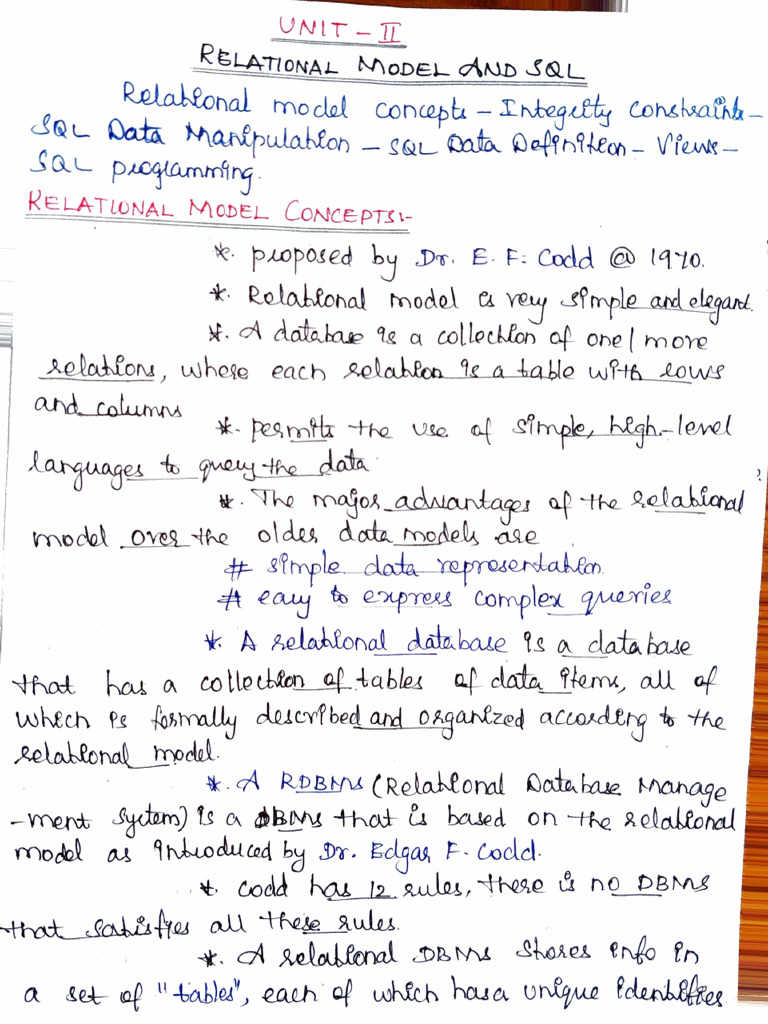 UNIT - II
RELATIONAL MODEL AND SQL
Relational model concepts - Integrity constraints -
SQL Data Manipulation - SQL Data Definition - Views -
SQL programming.
RELATIONAL MODEL CONCEPTS:-
*. proposed by Dr. E. F. Codd @ 1970.
*. Relational model is very simple and elegant.
*. A database is a collection of one/more
relations, where each relation is a table with rows
and columns
*. permits the use of simple, high-level
languages to query the data
*. The major advantages of the relational
model over the older data models are
# simple data representation.
# easy to express complex queries
*. A relational database is a database
that has a collection of tables of data items, all of
which is formally described and organized according to the
relational model.
*. A RDBMS (Relational Database Manage
-ment System) is a DBMS that is based on the relational
model as introduced by Dr. Edgar F. Codd.
*. Codd has 12 rules, there is no DBMS
that satisfies all these rules.
*. A relational DBMS stores info in
a set of "tables", each of which has a unique identifier